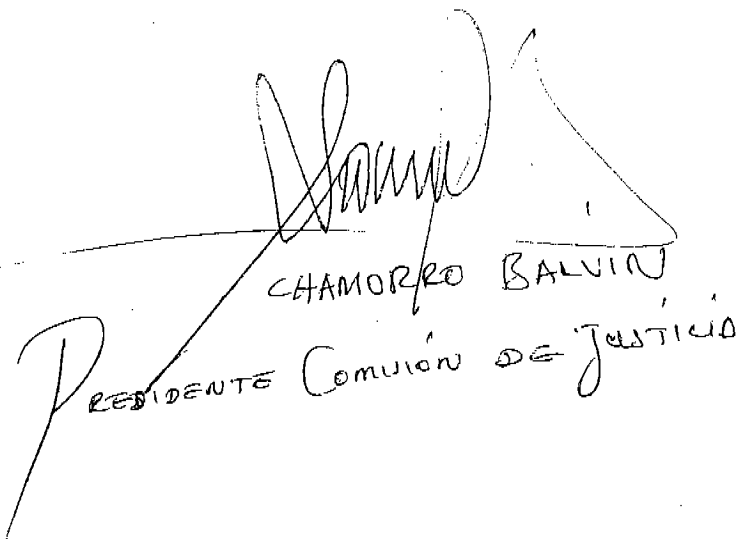 CHAMORRO BALVIN
PRESIDENTE COMISIÓN DE JUSTICIA